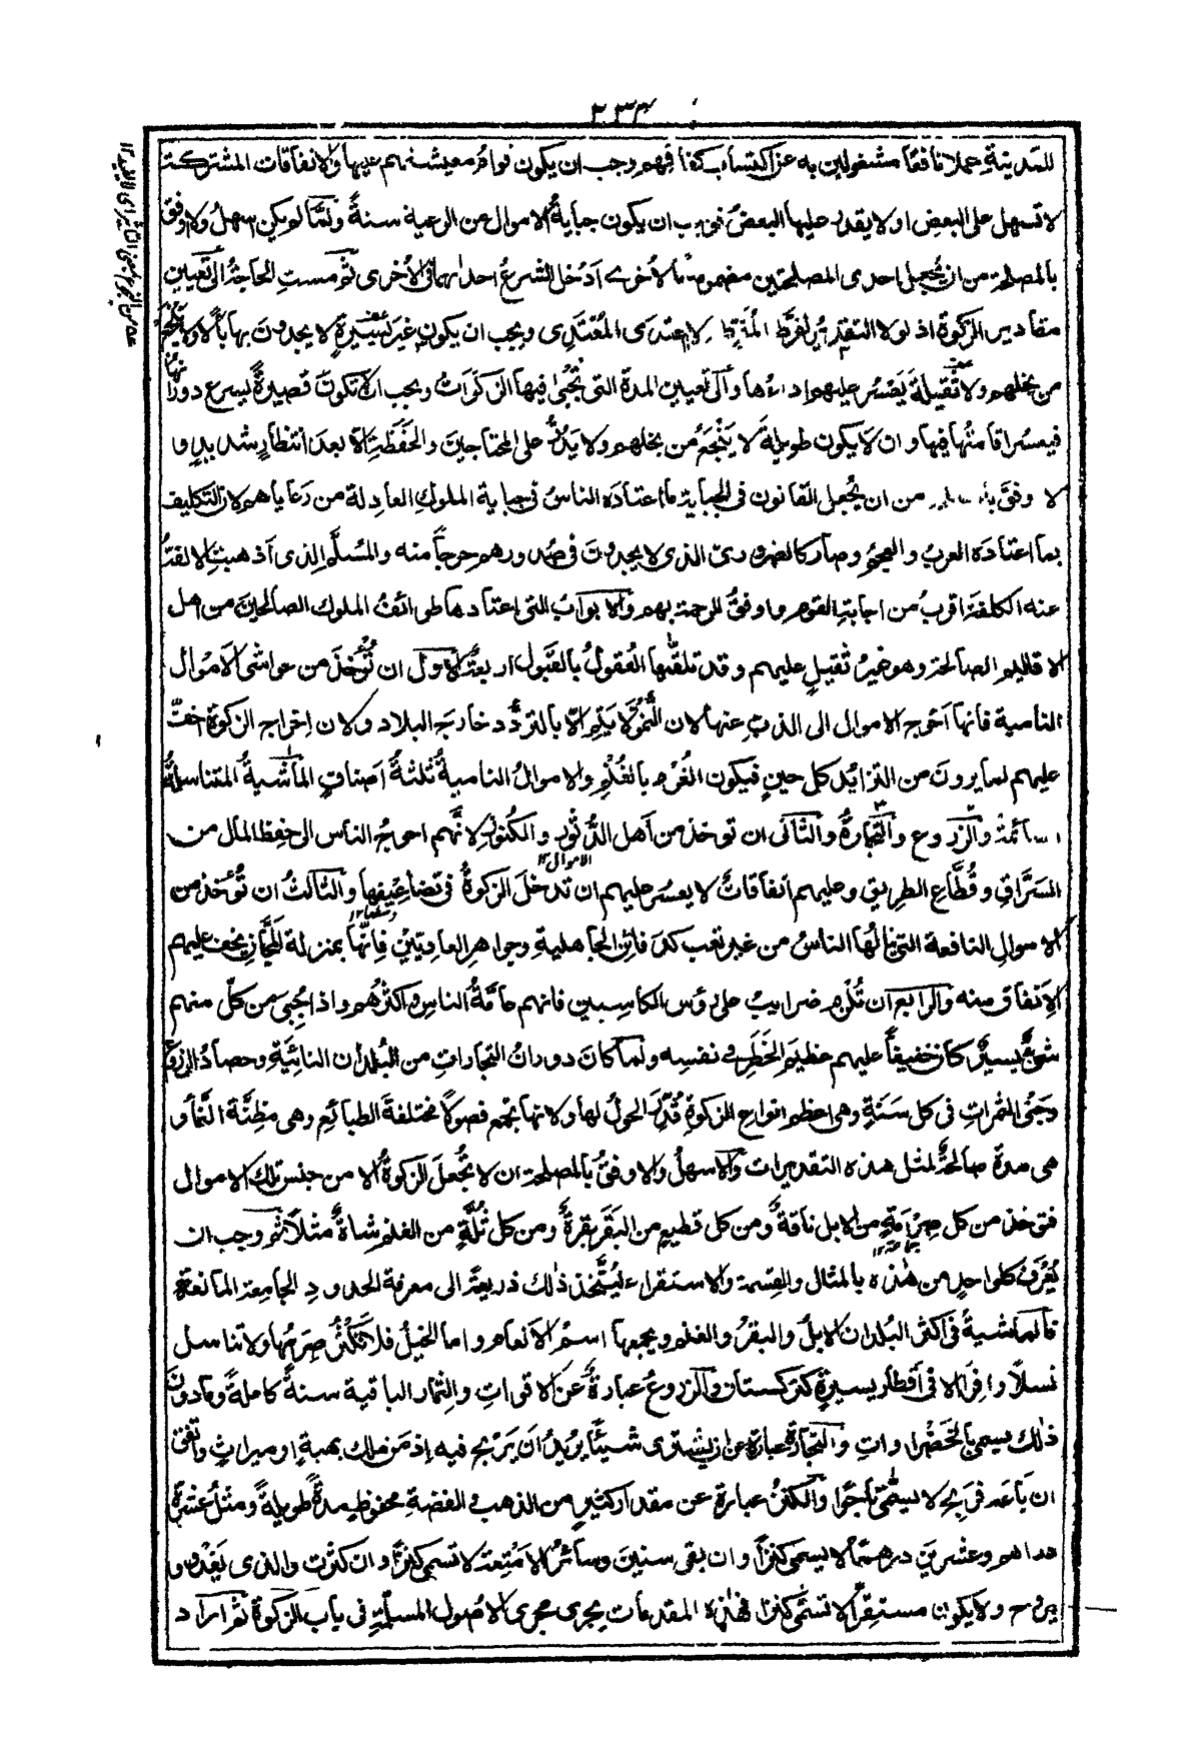 ٢٣٣
للمدينة عملا نافعا مشغولين به عن اكتساب كفافهم وجب ان يكون قوام معيشتهم عليها والانفاقات المشتركة
لا تسهل على البعض او لا يقدر عليها البعض فوجب ان يكون جباية الاموال من الرعية سنةً ولما لم يكن اسهل ولا اوفق
بالمصلحة من ان يُجعل احدى المصلحتين مضمومة بالأخرى أدخل الشرعُ احداهما في الأخرى ثم مست الحاجةُ الى تعيين
مقادير الزكوة اذ لولا التقدير لفرّط المفرط ولاعتدى المُعْتَدِى ويجب ان يكون غيرَ يسيرةٍ لا يجدون بها بالاً ولا ينجع
من بخلهم ولا ثقيلةً يَعْسُر عليهم اداءها وألى تعيين المدة التى تُجْبٰى فيها الزكوات ويجب ان لا تكون قصيرةً يسرع دورانها
فيعسُر اقامتُها فيها وان لا يكون طويلةً لا يَنْجَعُ من بخلهم ولا يَدُرُّ على المحتاجينَ والحَفَظَةِ الا بعدَ انتظارٍ شديدٍ و
لا اوفق با من ان يُجعل القانون فى الجباية ما اعتاده الناسُ فى جباية الملوكِ العادلة من رَعاياهم لان التكليف
بما اعتاده العربُ والعجمُ وصار كالضرورى الذى لا يجدون فى صُدورهم حرجًا منه والمُسلَّم الذى أذهبتِ الالفةُ
عنه الكلفةَ اقربُ من اجابة القوم واوفقُ للرحمة بهم والابوابُ التى اعتادها طوائفُ الملوك الصالحينَ من اهل
الاقاليم الصالحة وهو غيرُ ثقيلٍ عليهم وقد تلقتْها العُقولُ بالقَبول اربعةٌ الاول ان تُؤْخذَ من حواشى الاموال
النامية فانها أحوج الاموال الى الذبِّ عنها لان النُّمُوَّ لا يَتِم الّا بالتردُّد خارجَ البلاد ولان اخراج الزكوة اخفّ
عليهم لما يرون من التزايُد كل حينٍ فيكون الغُرْم بالغُنْمِ والاموالُ الناميةُ ثلثةُ أصنافٍ الماشيةُ المتناسلةُ
السائمة والزروع والتجارةُ والثانى ان توخذ من أهل الدُّثور والكُنوز لانَّهم احوجُ الناس الى حِفظ المال من
السرّاق وقُطَّاع الطريق وعليهم انفاقاتٌ لا يعسُر عليهم ان تدخُل الزكوةُ فى تضاعيفها والثالثُ ان تُؤْخذ من
الاموال ١٢
الاموالِ النافعة التى ينالُها الناسُ من غير تعب كدفائن الجاهلية وجواهر العاديّينَ فانَّها بمنزلة المجَّان يخف عليهم
الانفاق منه والرابع ان تُلْزم ضرائبُ على رؤس الكاسبين فانهم عامّةُ الناس واكثرُهم واذا جُبِىَ من كلٍّ منهم
شئٌ يسيرٌ كان خفيفاً عليهم عظيمَ الخَطَر فى نفسه ولما كان دورانُ التجاراتِ من البُلدان النائيةِ وحصادُ الزروع
وجَنْىُ الثمراتِ فى كل سَنَةٍ وهى اعظم انواع الزكوةِ قُدِّرَ الحولُ لها ولانها تجمع فصولاً مختلفةَ الطبائع وهى مظِنَّة النَّماء و
هى مدة صالحةٌ لمثل هذه التقديرات والاسهلُ والاوفقُ بالمصلحة ان لا تُجعلَ الزكوةُ الا من جنس تلك الاموال
فتؤخذ من كل صِرْمَةٍ من الابل ناقةٌ ومن كل قطيعٍ من البَقَر بقرةٌ ومن كل ثُلّةٍ من الغنم شاةٌ مثلاً ثم وجب ان
يُعْرَفَ كل واحدٍ من هٰذه بالمثال والقِسمة والاستقراء ليُتَّخذ ذٰلك ذريعةً الى معرفة الحدودِ الجامعة المانعة
فالماشيةُ فى اكثر البُلدان الابلُ والبقرُ والغنم ويجمعها اسمُ الأنعام واما الخيلُ فلا تَكْثُر صِرَمُها ولا تناسل
نسلاً وافِرًا الا فى أقطار يسيرةٍ كتركستان والزروعُ عبارةٌ عن الاقوات والثمار الباقية سنةً كاملةً وما دون
ذٰلك يسمى بالخَضْراواتِ والتجارةُ عبارة عن ان يشترى شيئًا يريدُ ان يَرْبح فيه إذ مَن ملك بهبةٍ او ميراثٍ واتفق
ان بَاعَه فرَبِح لا يسمّٰى تاجرًا والكنزُ عبارة عن مقدار كثيرٍ من الذهب والفضة محفوظٍ مدةً طويلةً ومثلُ عشرة
دراهم وعشرين درهمًا لا يسمى كنزًا وان بقى سنينَ وسائرُ الامتعة لا تسمى كنزًا وان كثرت والذى يَغْدُو و
يروح ولا يكون مستقِرًّا لا تسمّٰى كنزا فهٰذه المقدمات يجرى مجرى الاصُول المسلّمة فى باب الزكوة ثم اراد